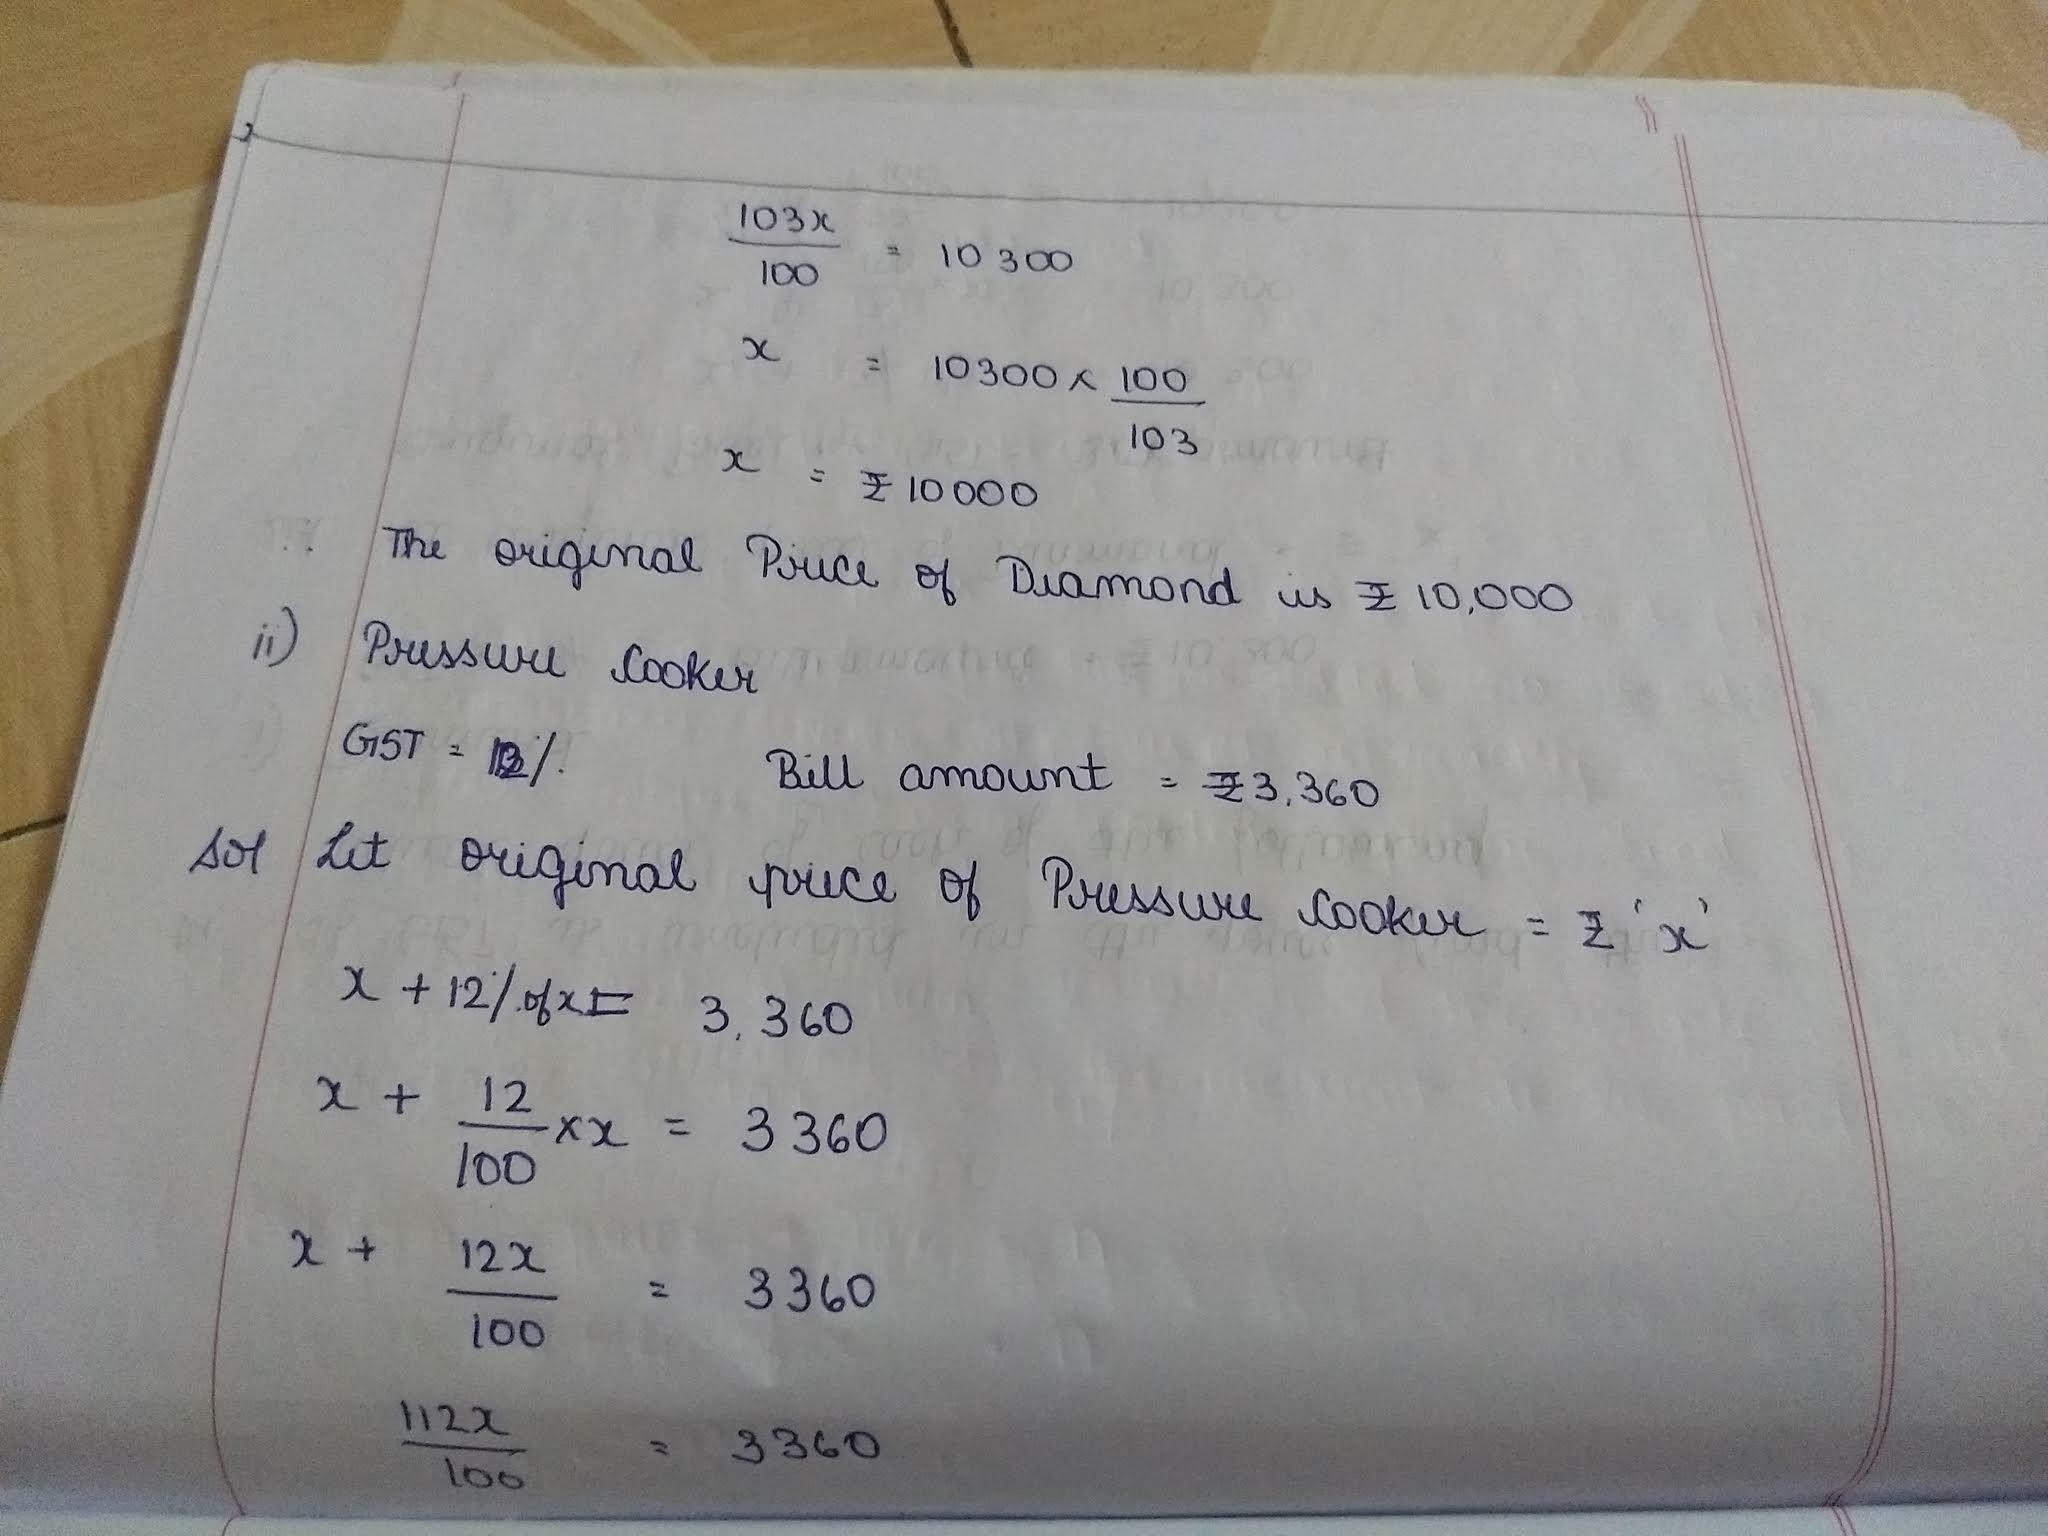 103x/100 = 10300
x = 10300 × 100/103
x = ₹10000
∴ The original Price of Diamond is ₹10,000
ii) Pressure Cooker
GST = 12% Bill amount = ₹3,360
Sol Let original price of Pressure Cooker = ₹'x'
x + 12% of x = 3,360
x + 12/100 × x = 3360
x + 12x/100 = 3360
112x/100 = 3360